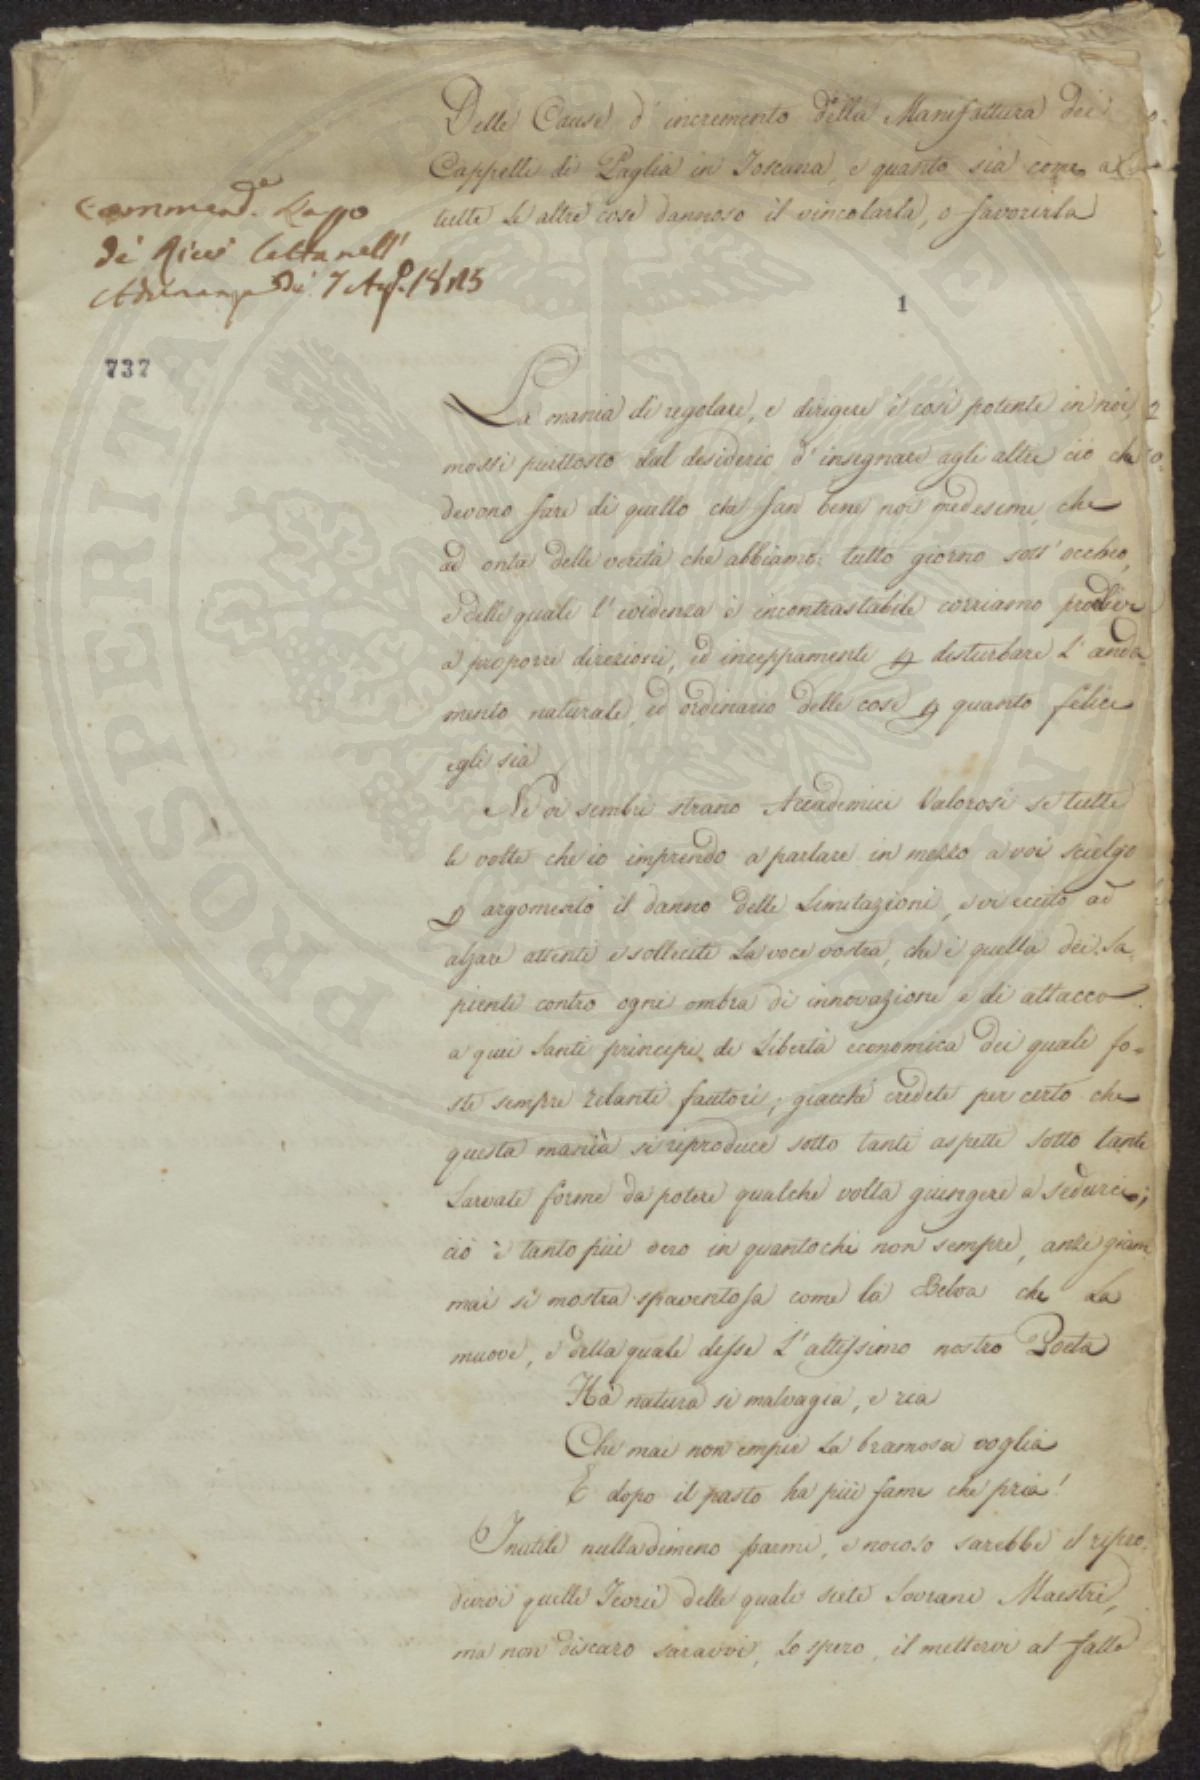 Delle Cause d'incremento della Manifattura dei
Cappelli di Paglia in Toscana, e quanto sia come a
tutte le altre cose dannoso il vincolarla, o favorirla
Commend.e Lapo
de' Ricci Letta nell'
Adunanza de' 7 Ag.o
1
737
La mania di regolare, e dirigere è così potente in noi,
mossi piuttosto dal desiderio d'insegnare agli altri ciò che
devono fare di quello che far bene noi medesimi, che
ad onta delle verità che abbiamo tutto giorno sott'occhio,
e delle quali l'evidenza è incontrastabile corriamo proclivi
a proporre direzioni, ed inceppamenti p disturbare l'anda-
mento naturale, ed ordinario delle cose p quanto felice
egli sia
Ne vi sembri strano Accademici Valorosi se tutte
le volte che io imprendo a parlare in mezzo a voi scielgo
p argomento il danno delle Limitazioni, e vi eccito ad
alzare attenti e solleciti la voce vostra, che è quella dei Sa-
pienti contro ogni ombra di innovazione e di attacco
a quei Santi principi di Libertà economica dei quali fo-
ste sempre zelanti fautori; giacché credete per certo che
questa mania si riproduce sotto tanti aspetti sotto tante
Larvate forme da potere qualche volta giungere a sedurci;
ciò è tanto più vero in quantoché non sempre, anzi giam-
mai si mostra spaventosa come la Belva che La
muove, e della quale disse L'altissimo nostro Poeta
Ha natura si malvagia, e ria
Che mai non empie la bramosa voglia
E dopo il pasto ha più fame che pria!
Inutile nulladimeno parmi, e noioso sarebbe il ripro-
durvi quelle Teorie delle quali siete Sovrani Maestri,
ma non discaro saravvi, lo spero, il mettervi al fatto
PROSPERITÀ